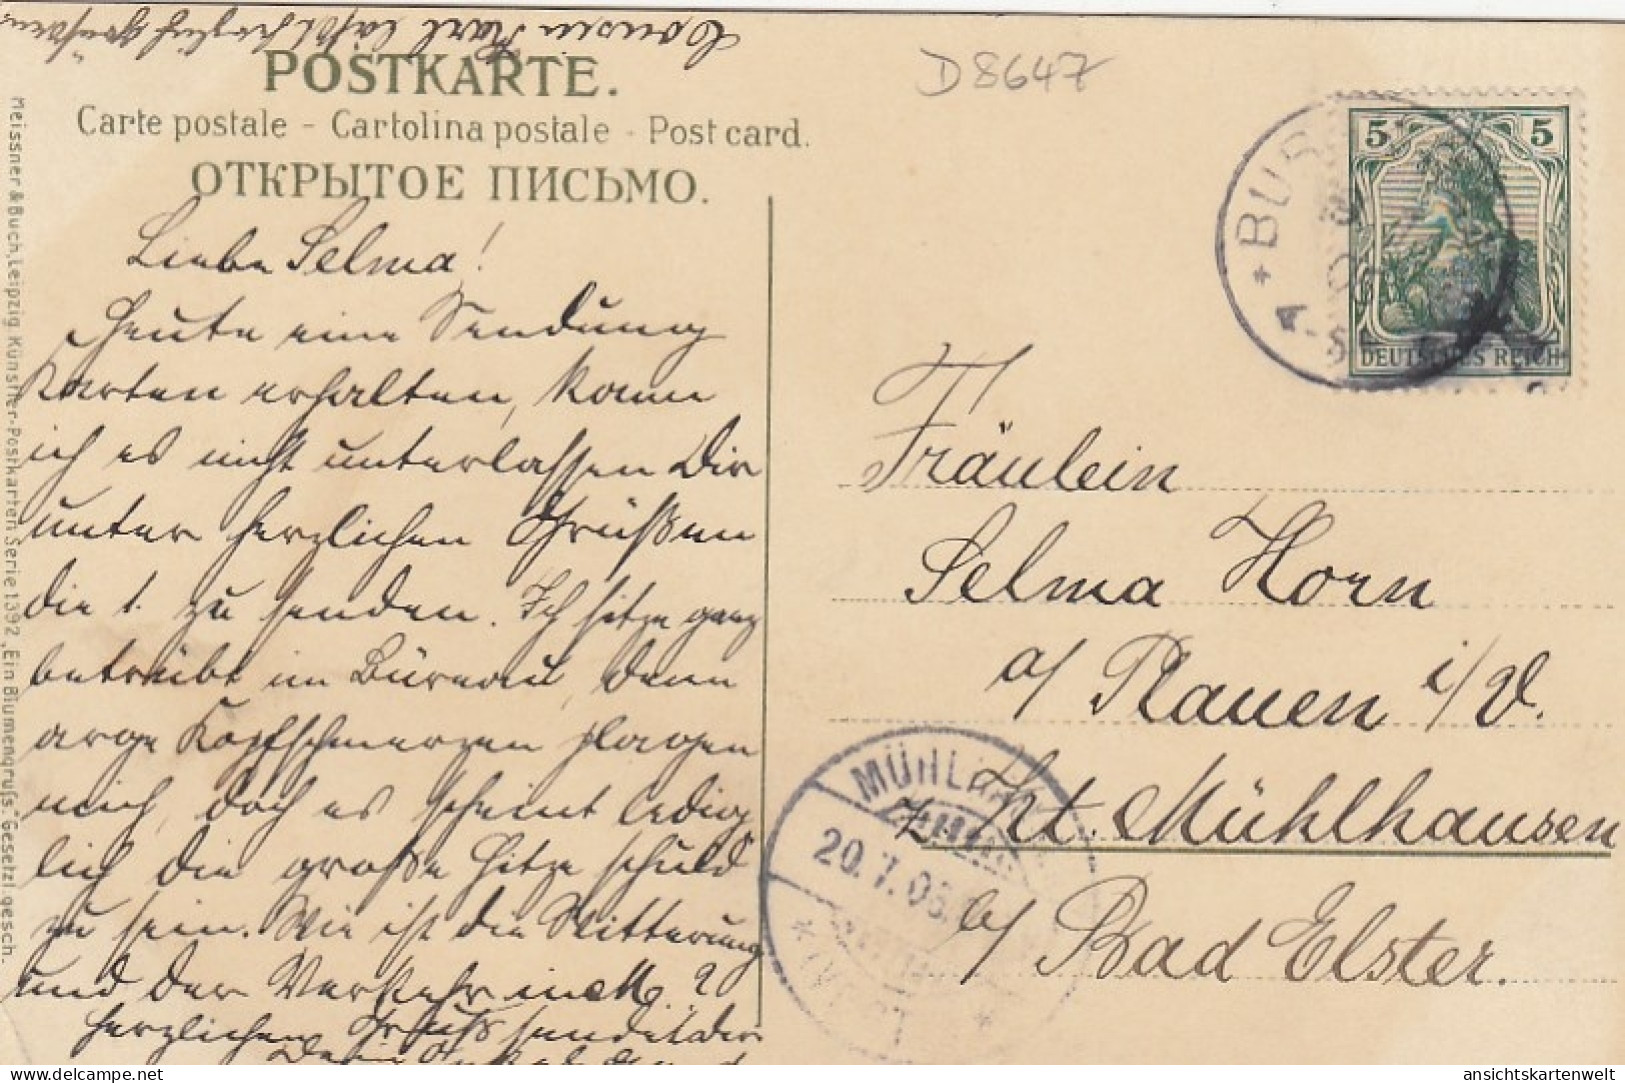 Cousin Karl läßt herzlich grüßen
D 8647
POSTKARTE.
Carte postale - Cartolina postale - Post card.
ОТКРЫТОЕ ПИСЬМО.
Meissner & Buch, Leipzig. Künstler-Postkarten Serie 1392 „Ein Blumengruß". Gesetzl. gesch.
Liebe Selma!
Heute eine Sendung
Karten erhalten, kann
ich es nicht unterlassen Dir
unter herzlichen Grüßen
die 1. zu senden. Ich sitze ganz
betrübt im Büreau, denn
arge Kopfschmerzen plagen
mich, doch es scheint ledig
lich die große Hitze schuld
zu sein. Wie ist die Witterung
und der Verkehr in M. ?
Herzlichen Gruß sendet Dir
Dein
*BUR
5 5
DEUTSCHES REICH
Fräulein
Selma Horn
a/ Plauen i/V.
z. Zt. Mühlhausen
b/ Bad Elster.
MÜHLHAUSEN
20.7.05.
ansichtskartenwelt
delcampe.net